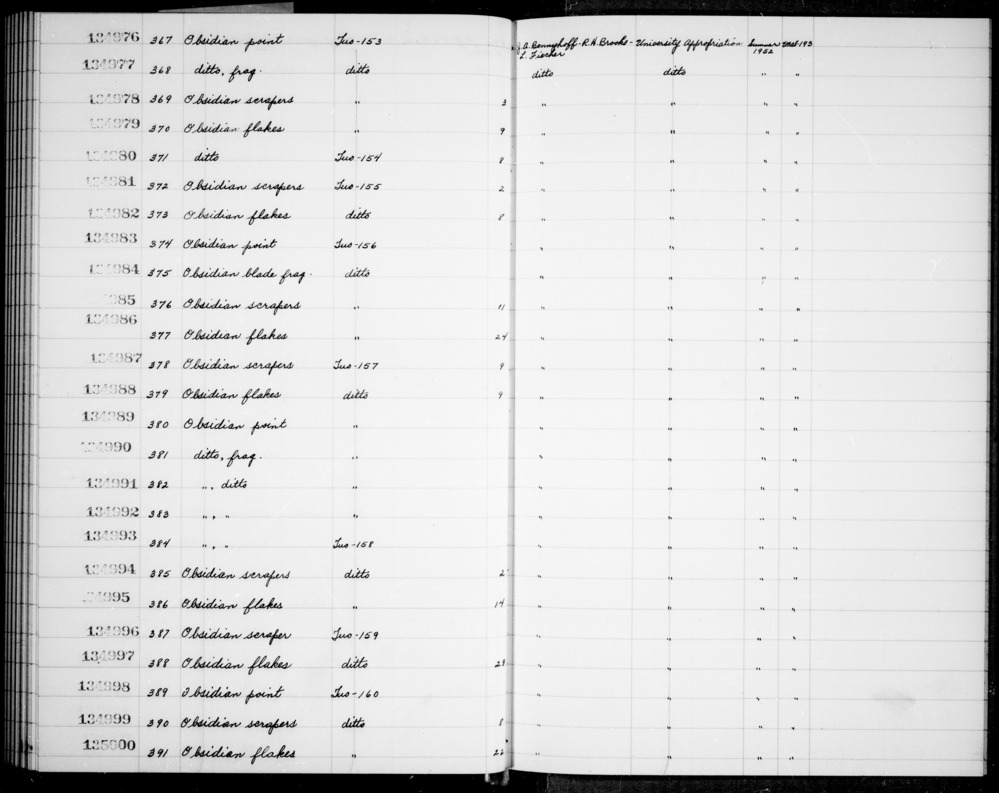 134976 367 Obsidian point Tuo-153 J.A. Bennyhoff-R.H. Brooks- University Appropriation Summer 1952 Mal-193
L. Fischer
134977 368 ditto, frag. ditto ditto ditto " "
134978 369 Obsidian scrapers " 3 " " " "
134979 370 Obsidian flakes " 9 " " " "
134980 371 ditto Tuo-154 8 " " " "
134981 372 Obsidian scrapers Tuo-155 2 " " " "
134982 373 Obsidian flakes ditto 8 " " " "
134983 374 Obsidian point Tuo-156 " " " "
134984 375 Obsidian blade frag. ditto " " " "
985 376 Obsidian scrapers " 11 " " " "
134986 377 Obsidian flakes " 24 " " " "
134987 378 Obsidian scrapers Tuo-157 9 " " " "
134988 379 Obsidian flakes ditto 9 " " " "
134989 380 Obsidian point " " " " "
134990 381 ditto, frag. " " " " "
134991 382 ", ditto " " " " "
134992 383 ", " " " " " "
134993 384 ", " Tuo-158 " " " "
134994 385 Obsidian scrapers ditto 2 " " " "
34995 386 Obsidian flakes " 14 " " " "
134996 387 Obsidian scraper Tuo-159 " " " "
134997 388 Obsidian flakes ditto 29 " " " "
134998 389 Obsidian point Tuo-160 " " " "
134999 390 Obsidian scrapers ditto 8 " " " "
135000 391 Obsidian flakes " 22 " " " "